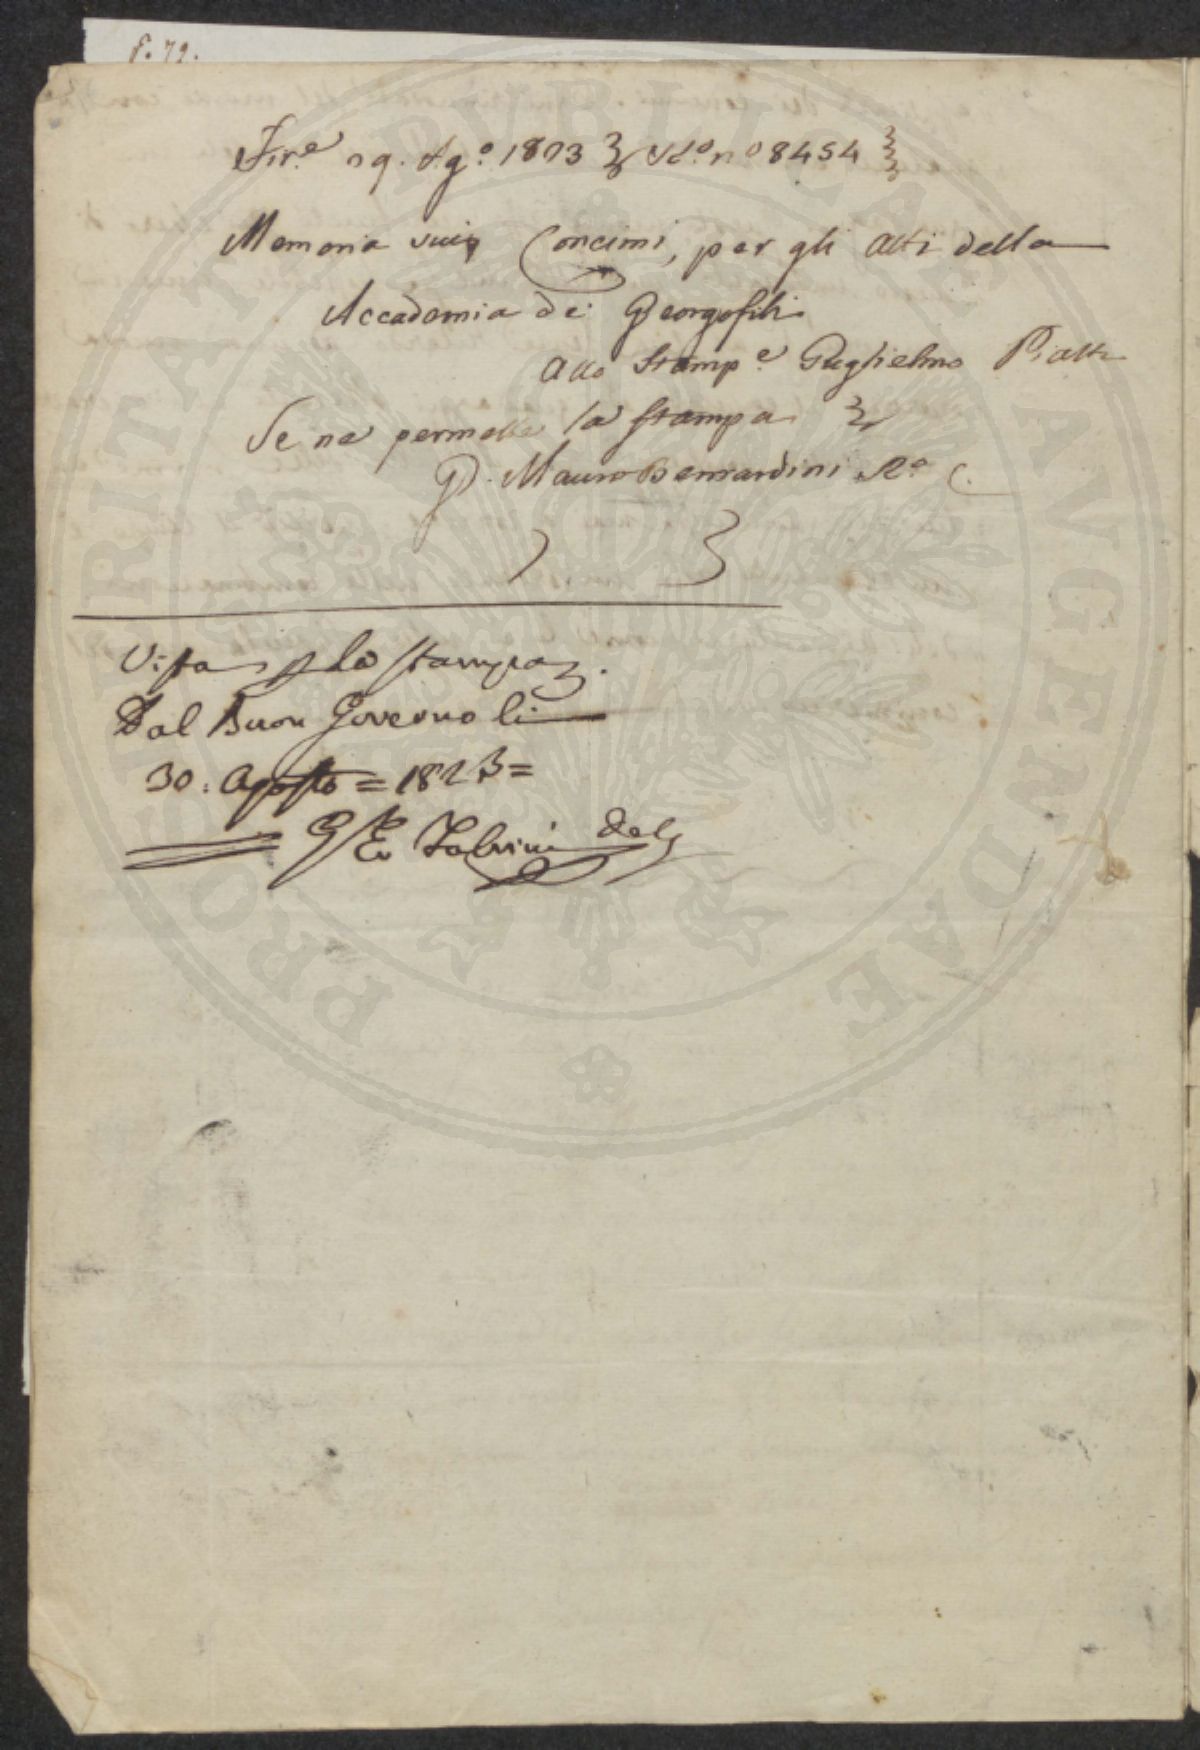 f. 72.
Fir.e 29. Ag.o 1823 Vd.o n.o 8454
Memoria sui Concimi, per gli Atti della
Accademia dei Georgofili
Allo Stamp.e Guglielmo Piatti
Se ne permette la stampa
P. Mauro Bernardini R.o C.
Vista p la stampa.
Dal Buon Governo li
30: Agosto = 1823 =
PROSPERITATI PUBLICAE AUGENDAE